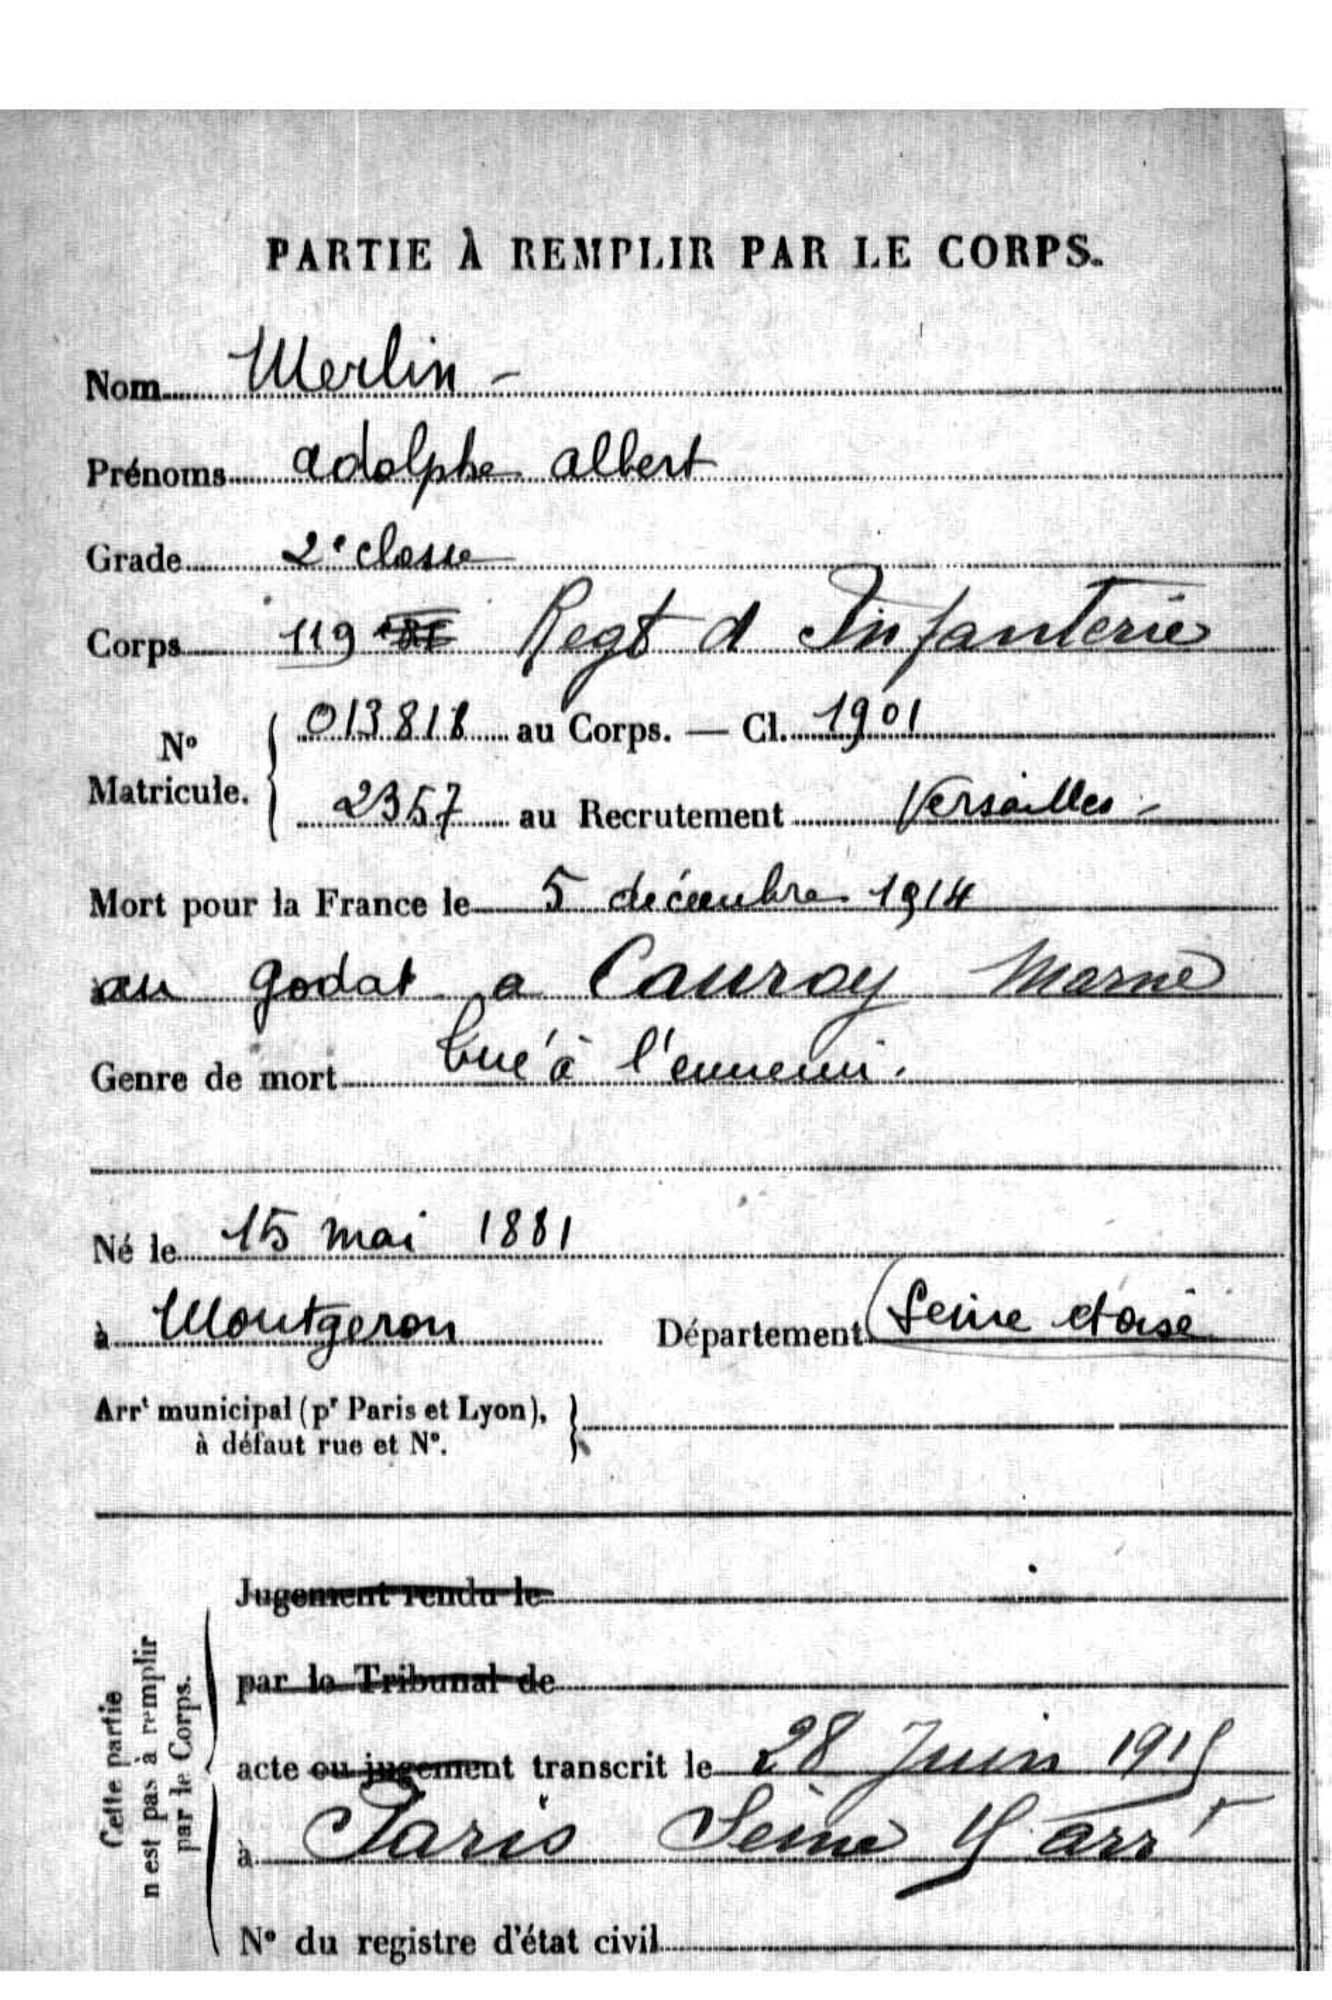 PARTIE À REMPLIR PAR LE CORPS.
Nom Merlin -
Prénoms adolphe albert
Grade 2e classe
Corps 119 Regt d Infanterie
No Matricule. { 013818 au Corps. — Cl. 1901
2357 au Recrutement Versailles -
Mort pour la France le 5 décembre 1914
au Godat a Cauroy Marne
Genre de mort tué à l'ennemi.
Né le 15 mai 1881
à Montgeron Département (Seine et oise
Arrt municipal (pr Paris et Lyon), }
à défaut rue et No.
Jugement rendu le
par le Tribunal de
acte ou jugement transcrit le 28 Juin 1915
à Paris Seine arrt
No du registre d'état civil
Cette partie
n'est pas à remplir
par le Corps.